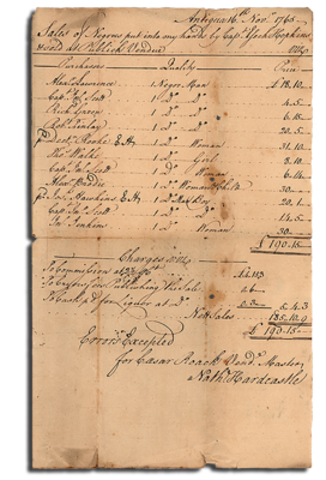 Antigua 16th Novr. 1765
Sales of Negroes put into my hands by Capt. Hopkins,
& sold At Publick Vendue
Purchasers Quality Price
Alexr. Lawrence 1 Negro Man £18.10
Capt. Jno. Scott 1 Do. Do.
1 Do. Do. 6.15
1 Do. Do. 20.5
Doctr. Rooke E H 1 Do. Woman 31.10
Thos. 1 Do. Girl 8.10
Capt. Jno. Scott 1 Do. Woman 6.
Alexr. 1 Do. Woman & Ch. 30
Hawkins E H 1 Do. Man Boy 20.1
Capt. Jno. Scott 1 Do. Do. 14.5
Jno. Jenkins 1 Do. Woman 30
£190.15
Charges Viz
To Commission at
To Publishing the Sale
To Cash pd. for Liquor at Do. 5.4.3
Nett Sales 185.10.9
£190.15
Errors Excepted
for Cæsar Roach Vendr. Master
Nathl. Hardcastle